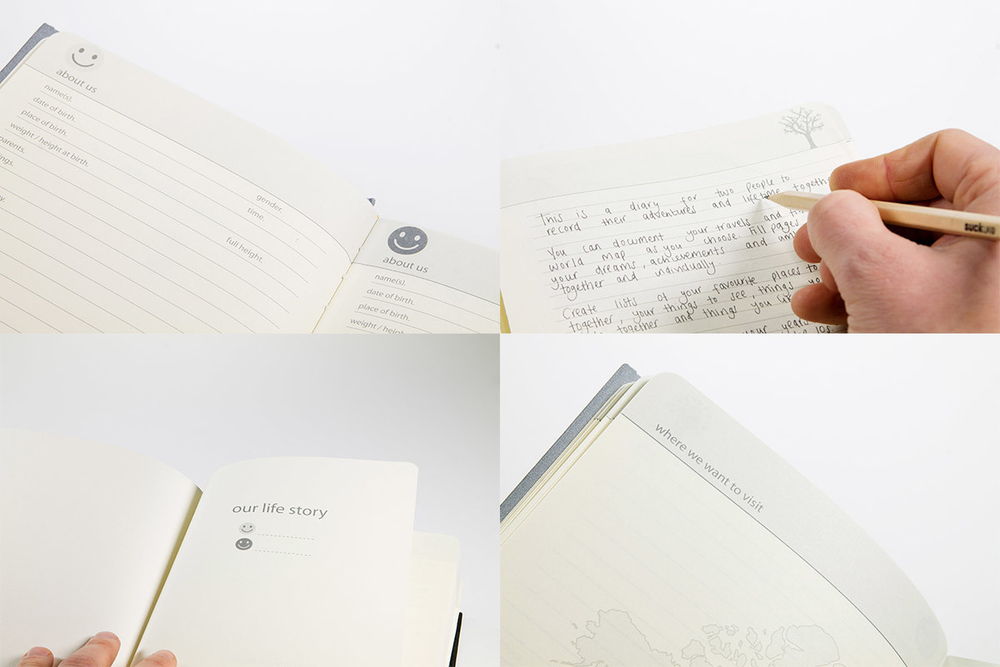 about us
name(s).
date of birth.
place of birth.
weight / height at birth.
parents.
gender.
time.
full height.
about us
name(s).
date of birth.
place of birth.
weight / height
This is a diary for two people to
record their adventures and lifetime together
You can document your travels and
world map as you choose fill pages
your dreams, achievements and
together and individually
Create lists of your favourite places to
together, your things to see, things
together and things you
your years
our life story
where we want to visit